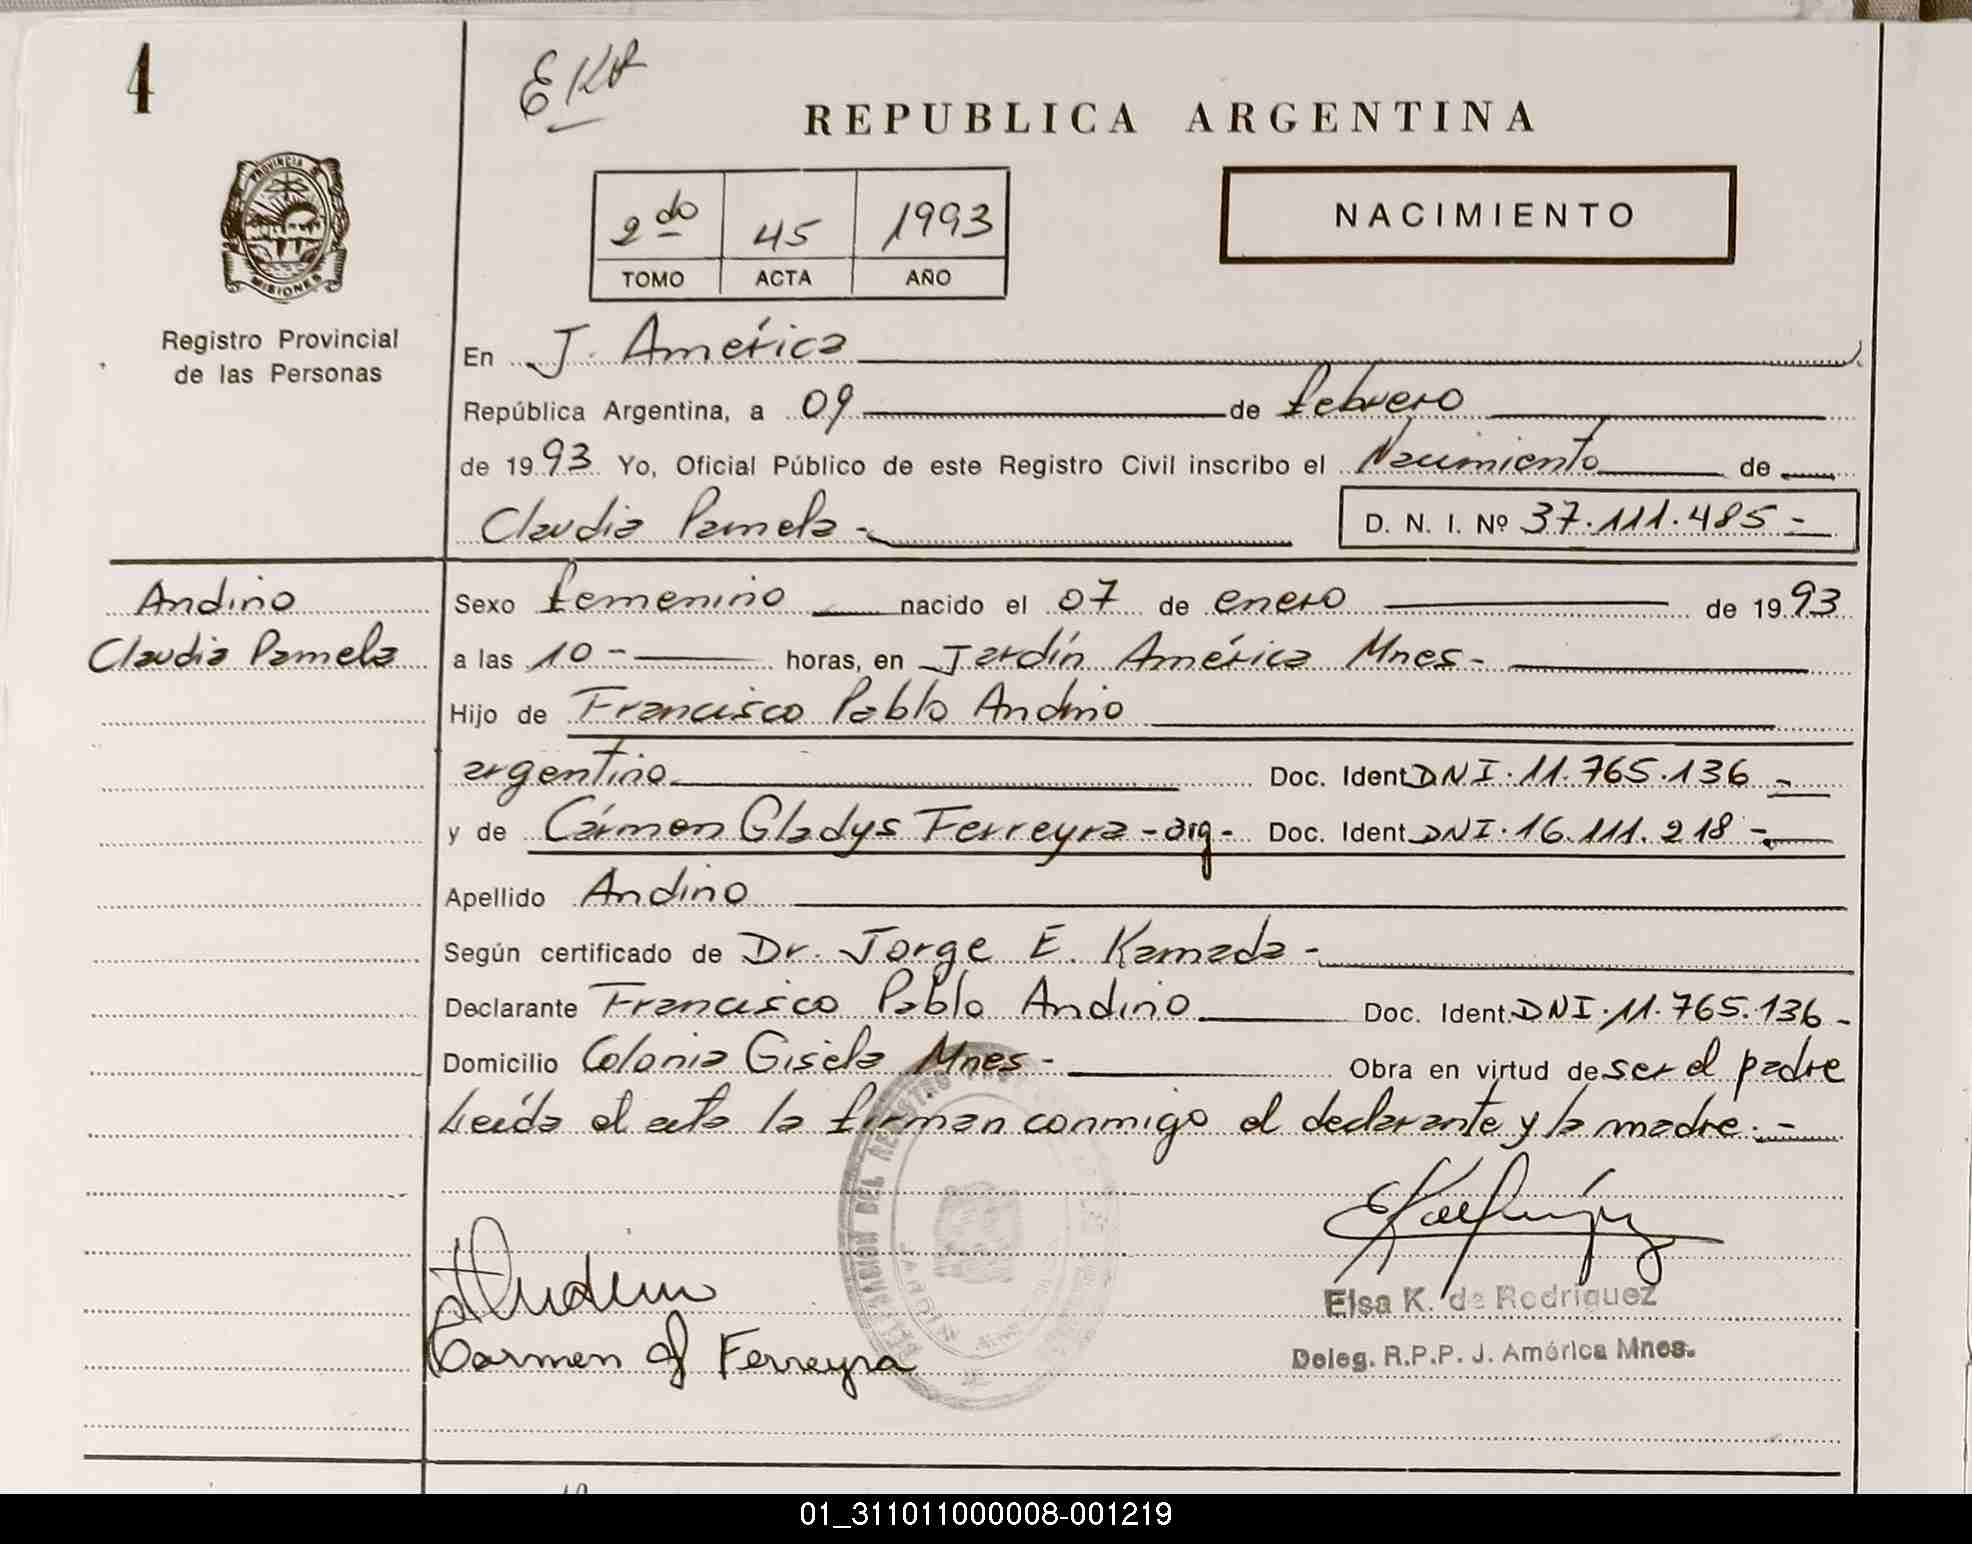 4
EKR
REPUBLICA ARGENTINA
PROVINCIA D
MISIONES
2do 45 1993
TOMO ACTA AÑO
NACIMIENTO
Registro Provincial
de las Personas
En J. América
República Argentina, a 09 de febrero
de 1993 Yo, Oficial Público de este Registro Civil inscribo el Nacimiento de
Claudia Pamela - D. N. I. Nº 37.111.485 -
Andino
Claudia Pamela
Sexo femenino nacido el 07 de enero de 1993
a las 10 - horas, en Jardín América Mnes -
Hijo de Francisco Pablo Andino
argentino Doc. Ident DNI. 11.765.136 -
y de Cármen Gladys Ferreyra - arg - Doc. Ident DNI. 16.111.218 -
Apellido Andino
Según certificado de Dr. Jorge E. Kamada -
Declarante Francisco Pablo Andino Doc. Ident. DNI. 11.765.136 -
Domicilio Colonia Gisela Mnes - Obra en virtud de ser el padre
Leída el acta la firman conmigo el declarante y la madre. -
DEL REGISTRO
Andino
Carmen G Ferreyra
Elsa K. de Rodriguez
Deleg. R.P.P. J. América Mnes.
01_311011000008-001219